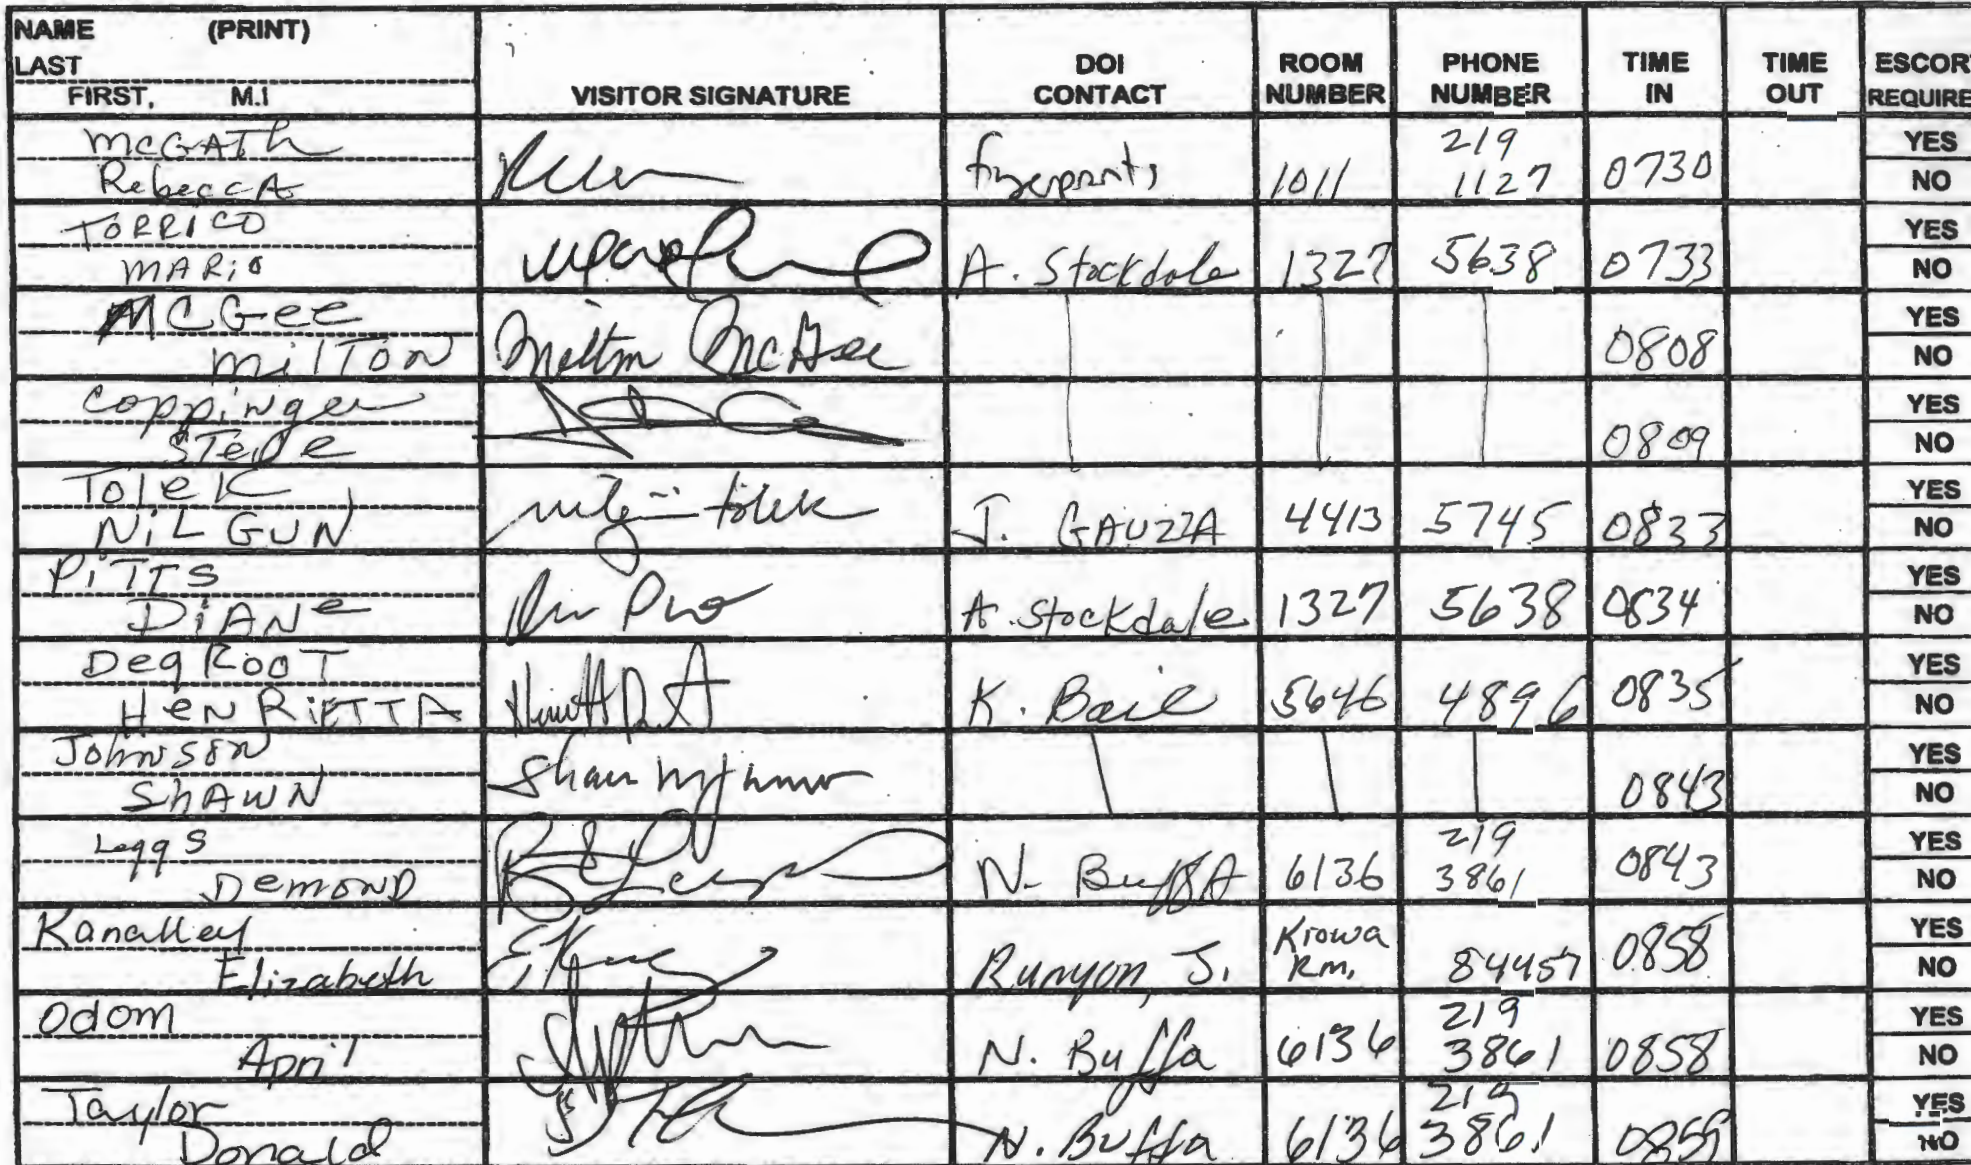 NAME (PRINT)
LAST
FIRST, M.I
VISITOR SIGNATURE
DOI
CONTACT
ROOM
NUMBER
PHONE
NUMBER
TIME
IN
TIME
OUT
ESCOR
REQUIRE
McGATh
RebeccA
fingerprints
1011
219
1127
0730
YES
NO
TORRICO
MARiO
A. Stockdale
1327
5638
0733
YES
NO
MCGee
milTON
Milton McGee
0808
YES
NO
Coppinger
STeve
0809
YES
NO
Tolek
NiLGUN
nilgün tolek
J. GAUZZA
4413
5745
0833
YES
NO
PiTTS
DiANe
A. Stockdale
1327
5638
0834
YES
NO
DegRooT
HeNRiETTA
K. Bail
5646
4896
0835
YES
NO
JohnsoN
ShAWN
0843
YES
NO
LeggS
DemonD
N. BuffA
6136
219
3861
0843
YES
NO
Kanalley
Elizabeth
Runyon, J.
Kiowa
Rm.
84457
0858
YES
NO
Odom
April
N. Buffa
6136
219
3861
0858
YES
NO
Taylor
Donald
N. Buffa
6136
219
3861
0859
YES
NO